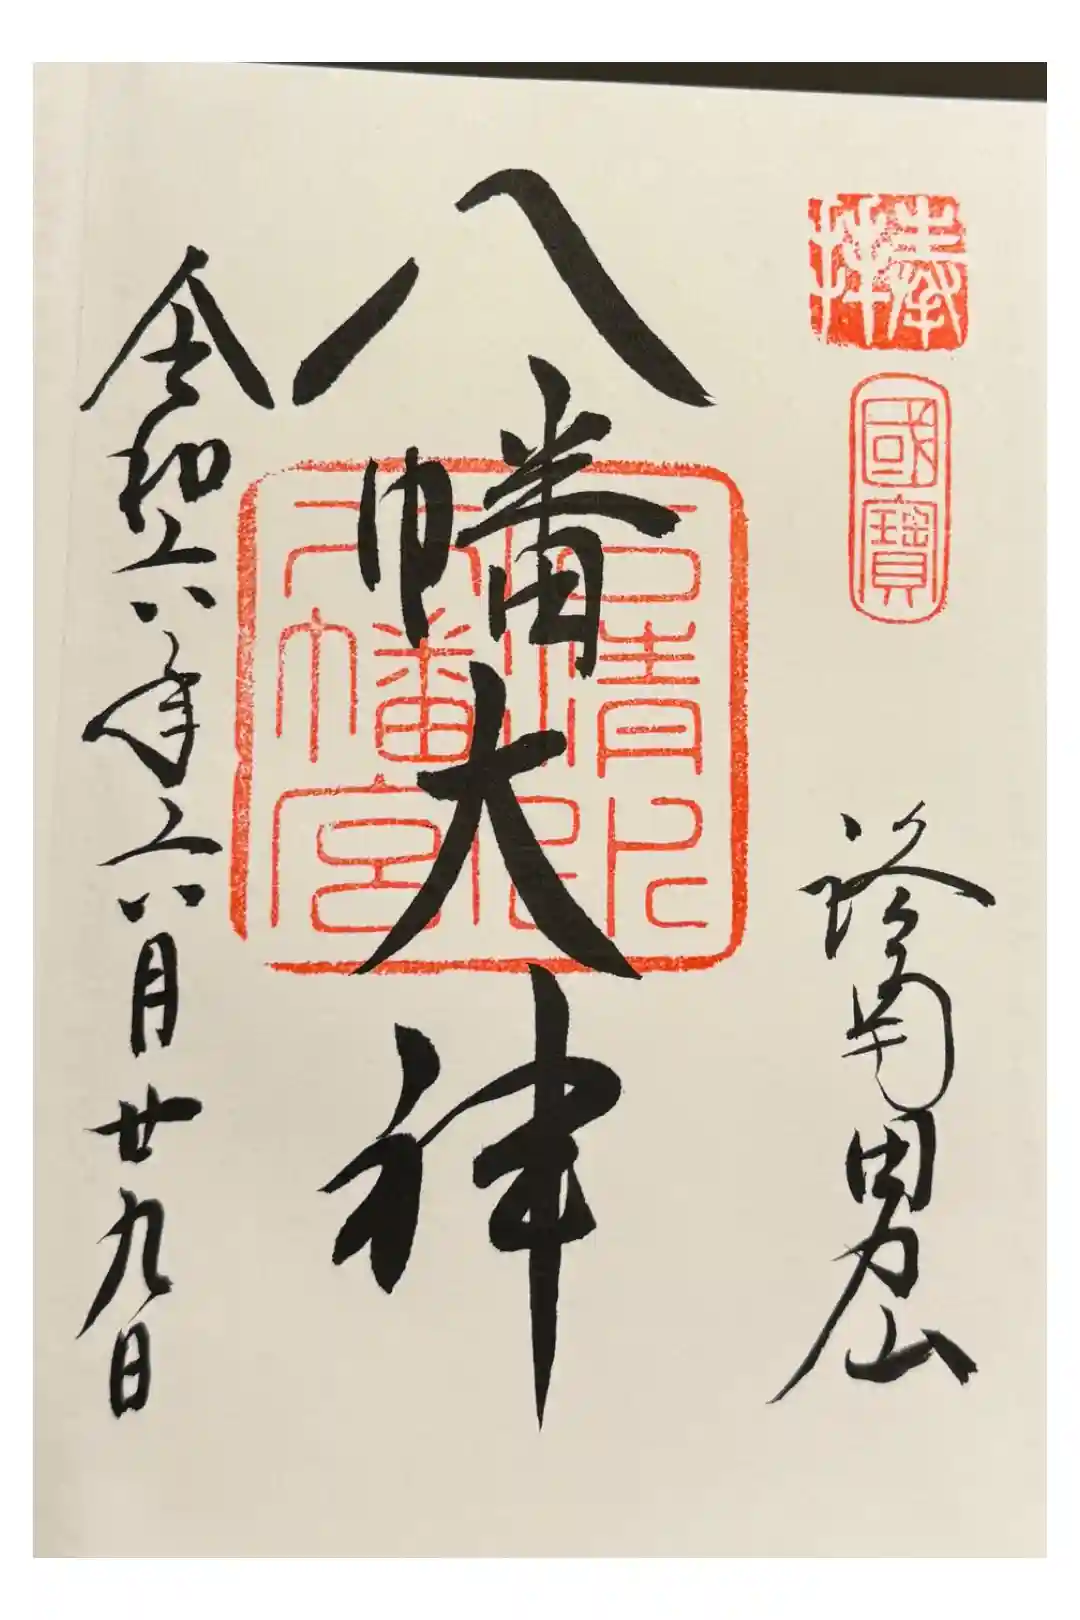 奉拝
國寶
洛南男山
八幡大神
八幡宮
令和六年六月廿九日